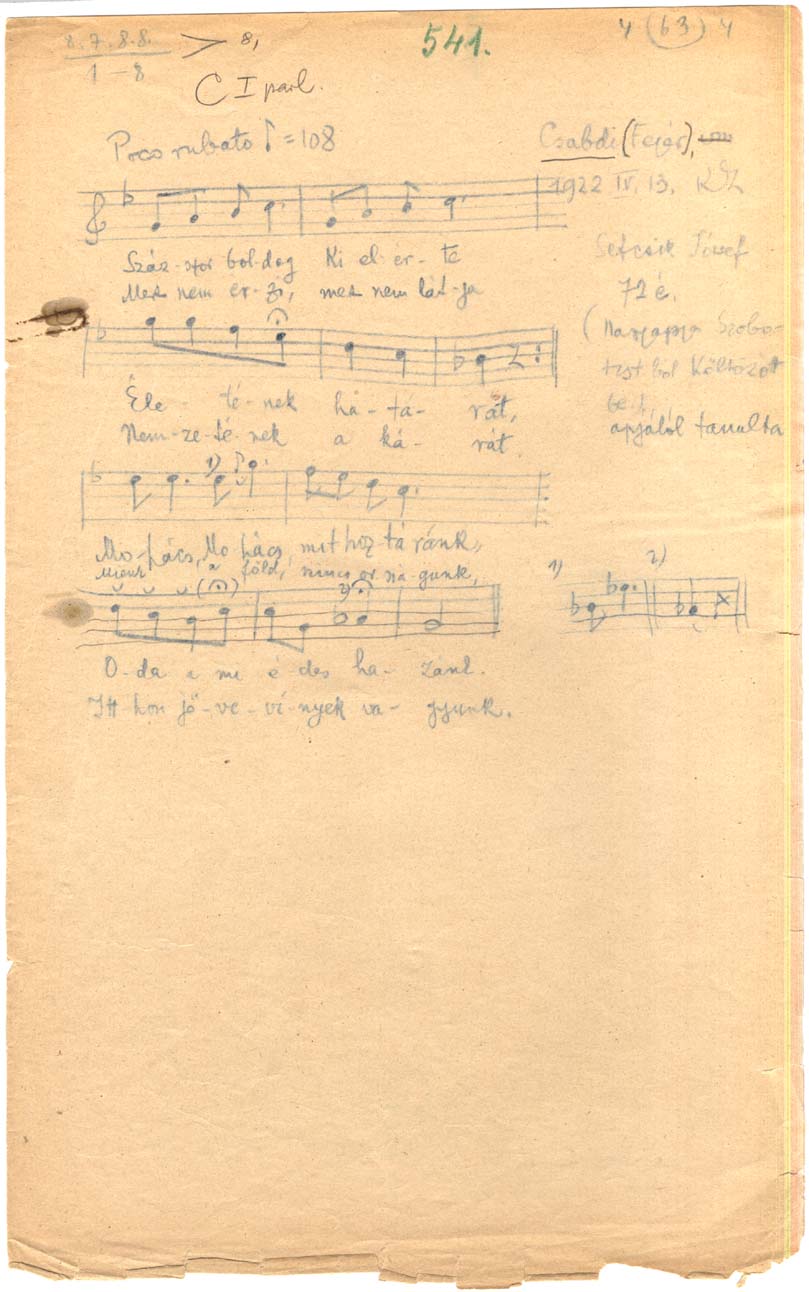 8. 7. 8. 8. > 8,
1 – 8
541.
4 (63) 4
C I parl.
Poco rubato ♪ = 108
Csabdi (Fejér),
1922 IV. 13. KZ
Száz-szor bol-dog Ki el-ér-te
Mert nem ér-zi, mert nem lát-ja
József
72 é.
(Nagyapja Szobo-
ból költözött
be.),
apjától tanulta
Éle-té-nek ha-tá-rát,
Nem-ze-té-nek a ká-rát.
1)
Mo-hács, Mo-hács, mit hoz-tá ránk,
Mienk a föld, nincs or-szá-gunk,
2)
1) 2)
O-da a mi é-des ha-zánk.
Itt-hon jö-ve-vé-nyek va-gyunk.